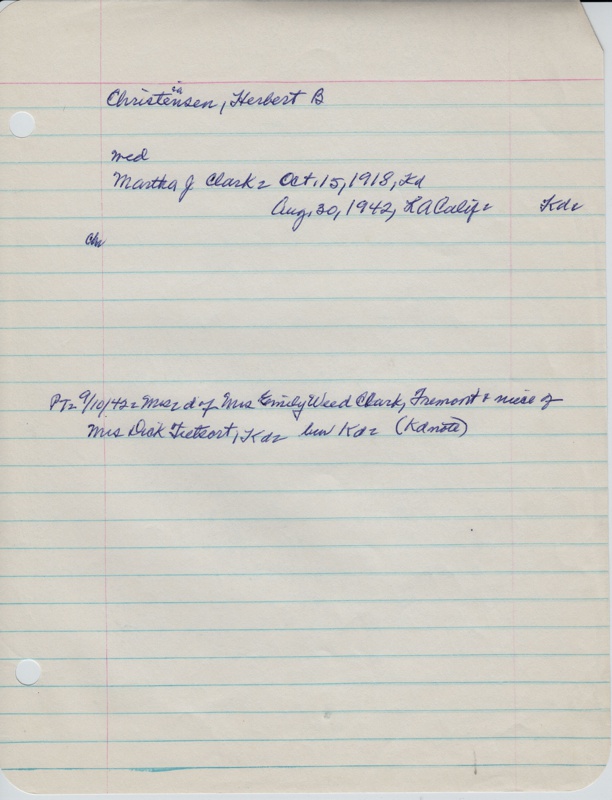 ia
Christensen, Herbert B
med
Martha J Clark = Oct. 15, 1918, Kd
Aug, 30, 1942, LA Calif = Kd=
Ch
PT= 9/10/42= Mrs = d of Mrs Emily Weed Clark, Fremont & niece of
Mrs Dick Tietsort, Kd= bur Kd= (Kdnote)